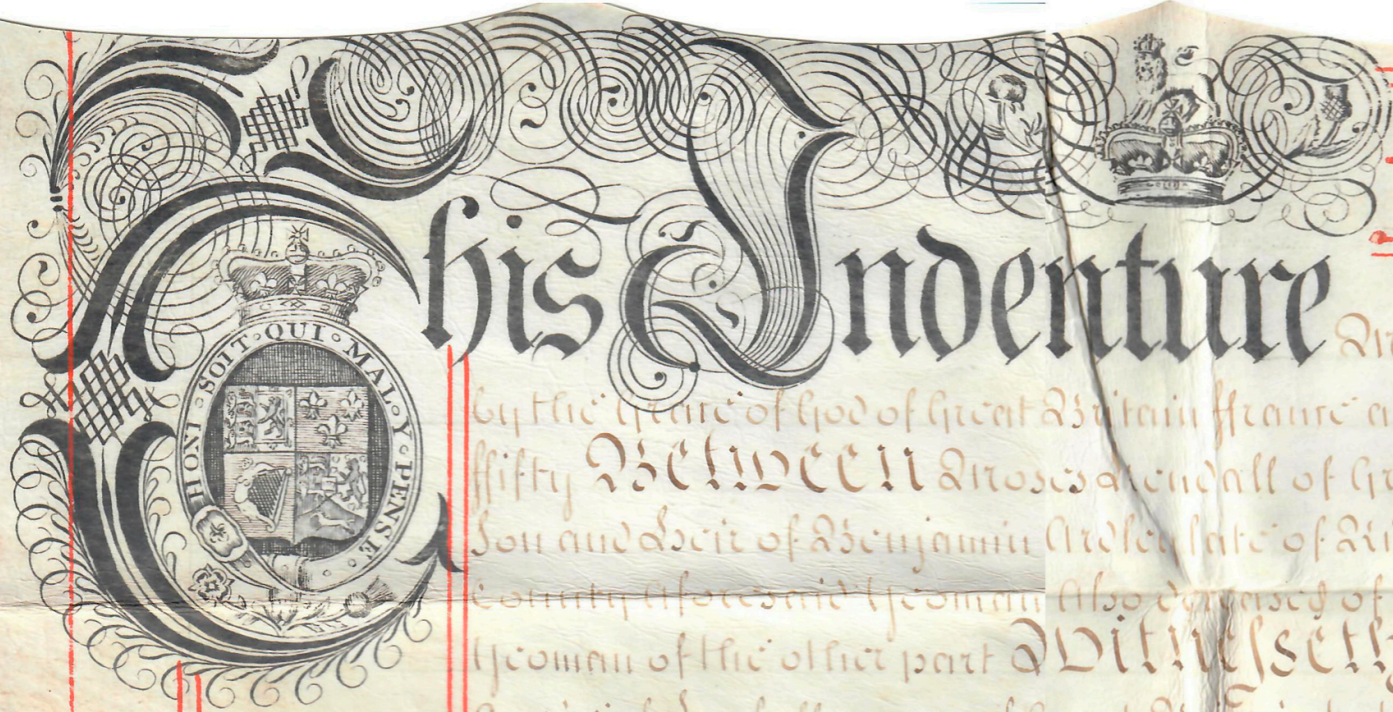 This Indenture
HONI · SOIT · QUI · MAL · Y · PENSE
by the Grace of God of Great Britain ffrance
ffifty Between Moses of
Son and Heir of Benjamin late of
County aforesaid Yeoman also deceased of
Yeoman of the other part Witnesseth